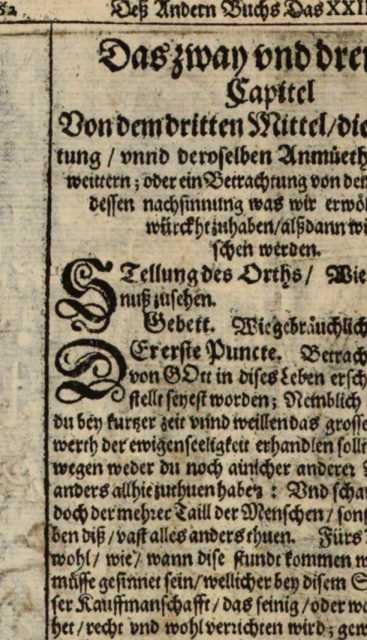 Deß Andern Buchs Das XXII
Das zway vnd drey
Capitel
Von dem dritten Mittel/ die
tung / vnnd deroselben Anmüeth
weittern; oder ein Betrachtung von den
dessen nachsinnung was wir erwöl
würckht zuhaben/ alßdann wi
schen werden.
STellung des Orths / Wie
nuß zusehen.
Gebett. Wie gebräuchlich
DEr erste Puncte. Betrach
von GOtt in dises Leben ersch
stellt seyest worden; Nemblich
du bey kurtzer zeit vnnd weillen das grosse
werth der ewigen seeligkeit erhandlen sollt
wegen weder du noch ainicher anderer
anders allhie zuthuen haben : Vnd schaw
doch der mehrer Taill der Menschen / son
ben diß / vast alles anders thuen. Fürs
wohl / wie / wann dise stundt kommen w
müsse gesinnet sein / wellicher bey disem S
ser Kauffmanschafft / das seinig / oder wa
het / recht vnd wohl verrichten wird; gew